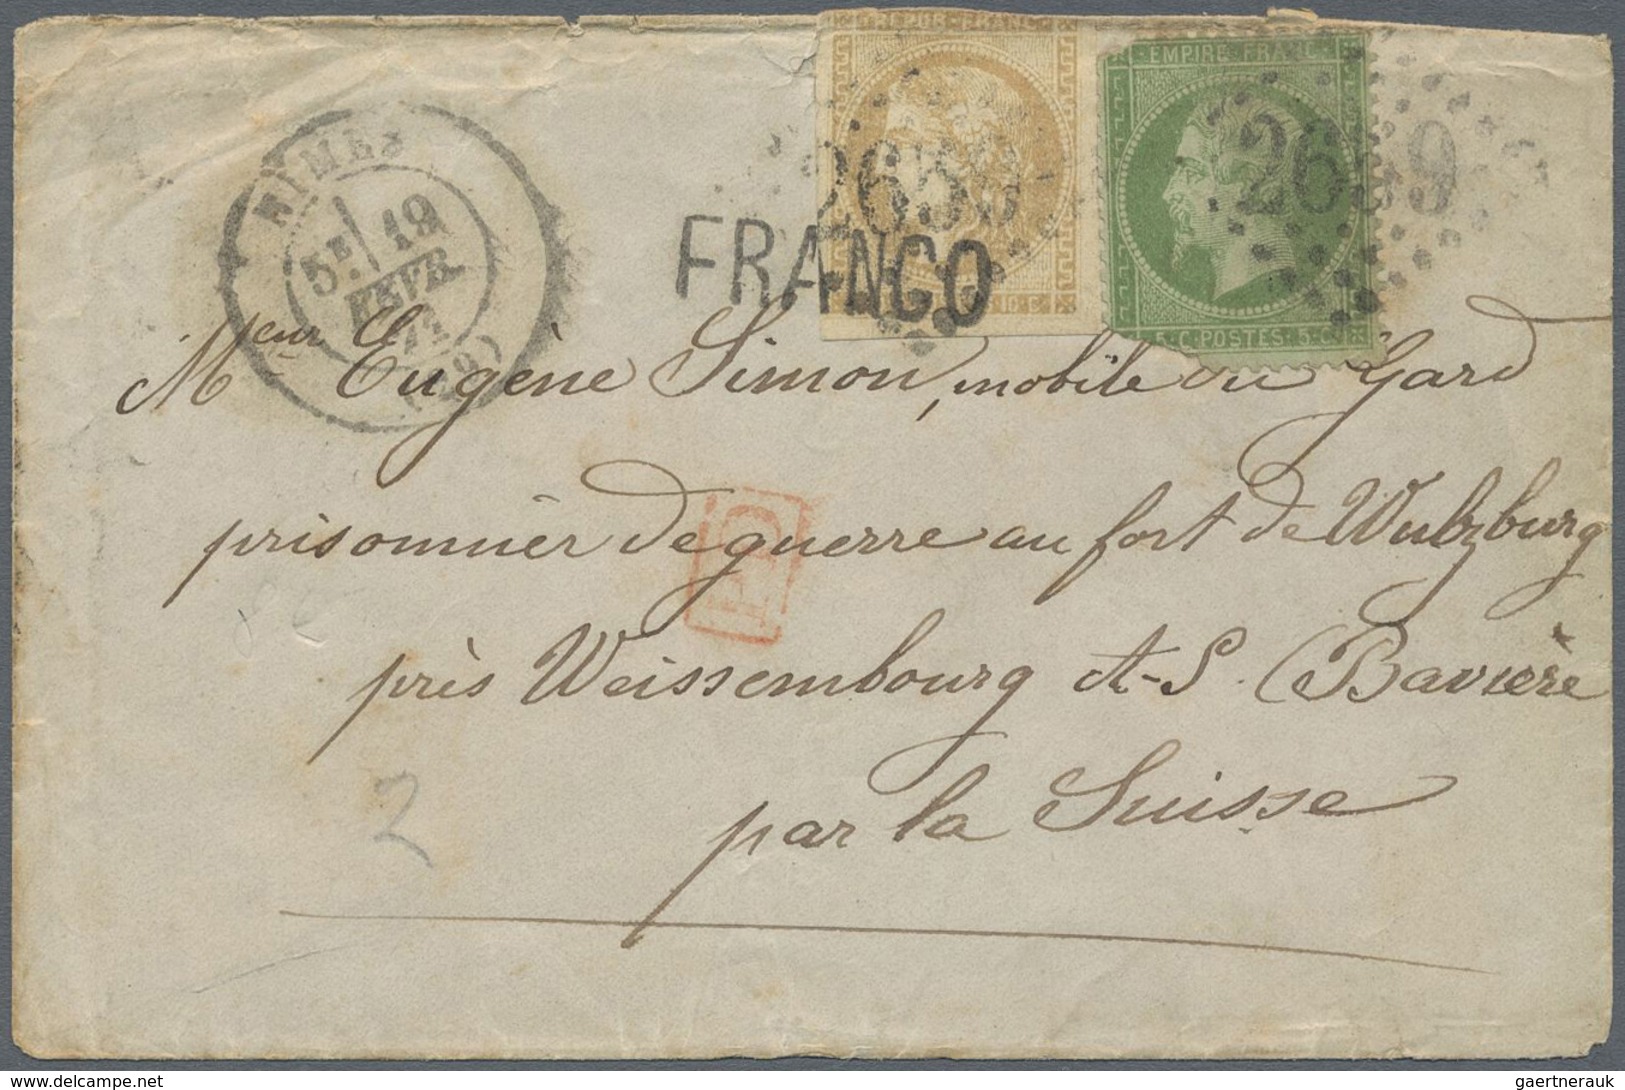 REPUB · FRANC
EMPIRE · FRANC
NIMES
5E 19
FEVR.
71
(29)
2659
2659
10 · C
5 · C · POSTES · 5 · C
FRANCO
Meur Eugène Simon, mobile du Gard
prisonnier de guerre au fort de Wulzburg
PD
près Weissembourg A-S. (Bavière
par la Suisse
2
gaertnerauk